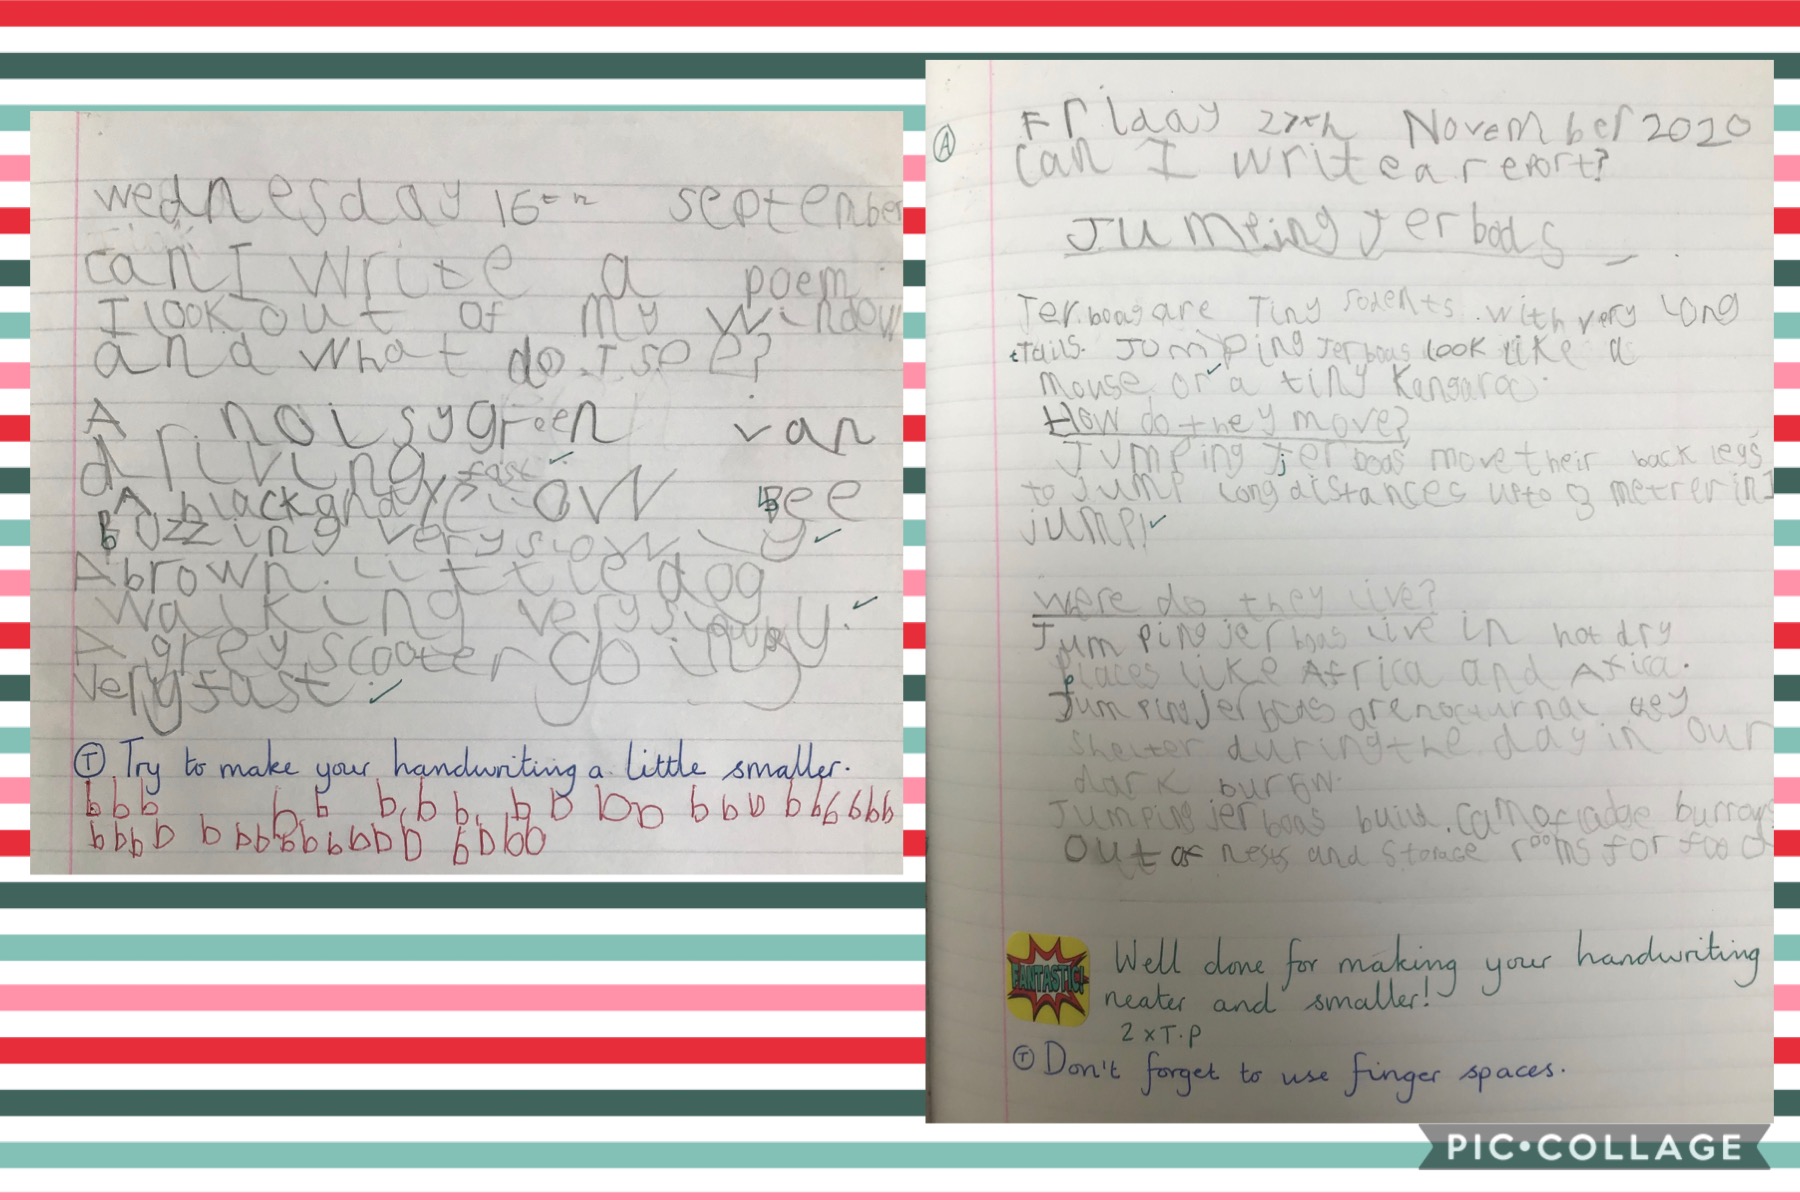 wednesday 16th september
can I write a poem
I look out of my window
and what do I see?
A noisy green van
driving fast
A black and yellow Bee
Buzzing very slowly
A brown little dog
walking very slowly.
A grey scooter going
very fast.
T Try to make your handwriting a little smaller.
b b b b b b b b b b b b b b b b b b b b b
b b b b b b b b b b b b b b b b b b
A
Friday 27th November 2020
Can I write a report?
Jumping Jerboas
Jerboas are Tiny rodents with very long
tails. Jumping Jerboas look like a
mouse or a tiny Kangaroo.
How do they move?
Jumping jerboas move their back legs
to jump long distances upto 3 metrer in 1
jump!
were do they live?
Jumping jerboas live in hot dry
places like Africa and
Jumping Jerboas are nocturnal they
shelter during the day in our
dark burow.
Jumping jerboas build camofladge burrows
out of nests and storage rooms for food
FANTASTIC!
Well done for making your handwriting
neater and smaller!
2 x T.P
T Don't forget to use finger spaces.
PIC•COLLAGE